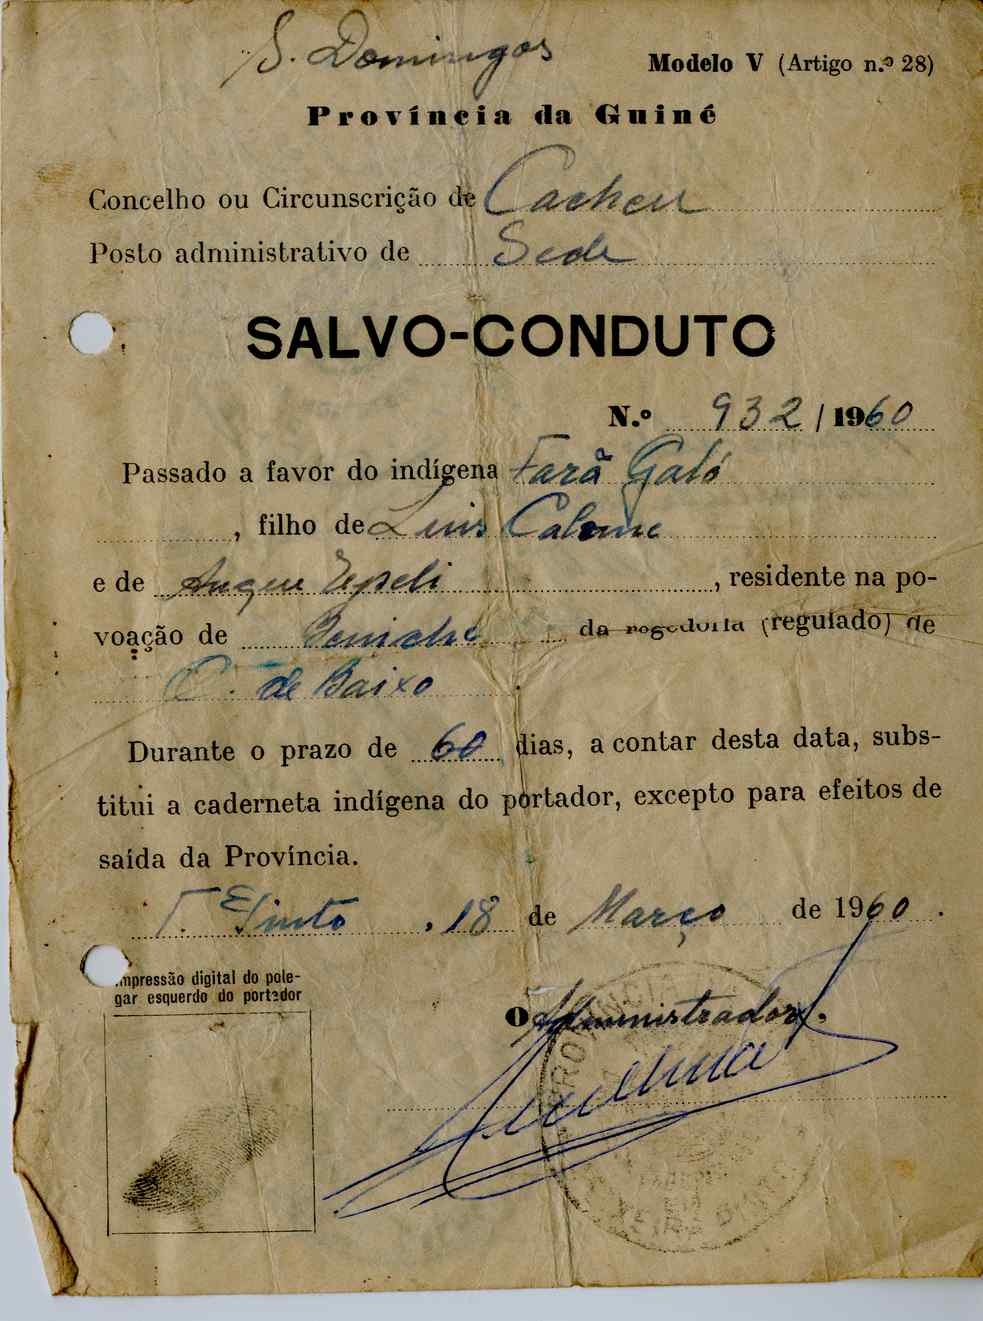 S. Domingos
Modelo V (Artigo n.º 28)
Província da Guiné
Concelho ou Circunscrição de Cacheu
Posto administrativo de Sede
SALVO-CONDUTO
N.º 932/1960
Passado a favor do indígena Fará Galó
, filho de Luis Calome
e de Anque Epseli, residente na po-
voação de Beniche da regedoria (regulado) de
C. de Baixo
Durante o prazo de 60 dias, a contar desta data, subs-
titui a caderneta indígena do portador, excepto para efeitos de
saída da Província.
T. Pinto, 18 de Março de 1960.
Impressão digital do pole-
gar esquerdo do portador
O Administrador.